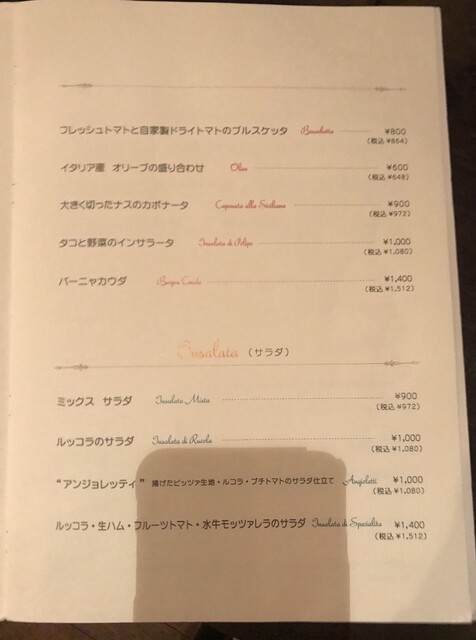 フレッシュトマトと自家製ドライトマトのブルスケッタ Bruschetta ¥800
(税込 ¥864)
イタリア産 オリーブの盛り合わせ Olive ¥600
(税込 ¥648)
大きく切ったナスのカポナータ Caponata alla Siciliana ¥900
(税込 ¥972)
タコと野菜のインサラータ Insalata di Polipo ¥1,000
(税込 ¥1,080)
バーニャカウダ Bagna Cauda ¥1,400
(税込 ¥1,512)
Insalata (サラダ)
ミックス サラダ Insalata Mista ¥900
(税込 ¥972)
ルッコラのサラダ Insalata di Rucola ¥1,000
(税込 ¥1,080)
“アンジョレッティ” 揚げたピッツァ生地・ルコラ・プチトマトのサラダ仕立て Angioletti ¥1,000
(税込 ¥1,080)
ルッコラ・生ハム・フルーツトマト・水牛モッツァレラのサラダ Insalata di Specialita ¥1,400
(税込 ¥1,512)